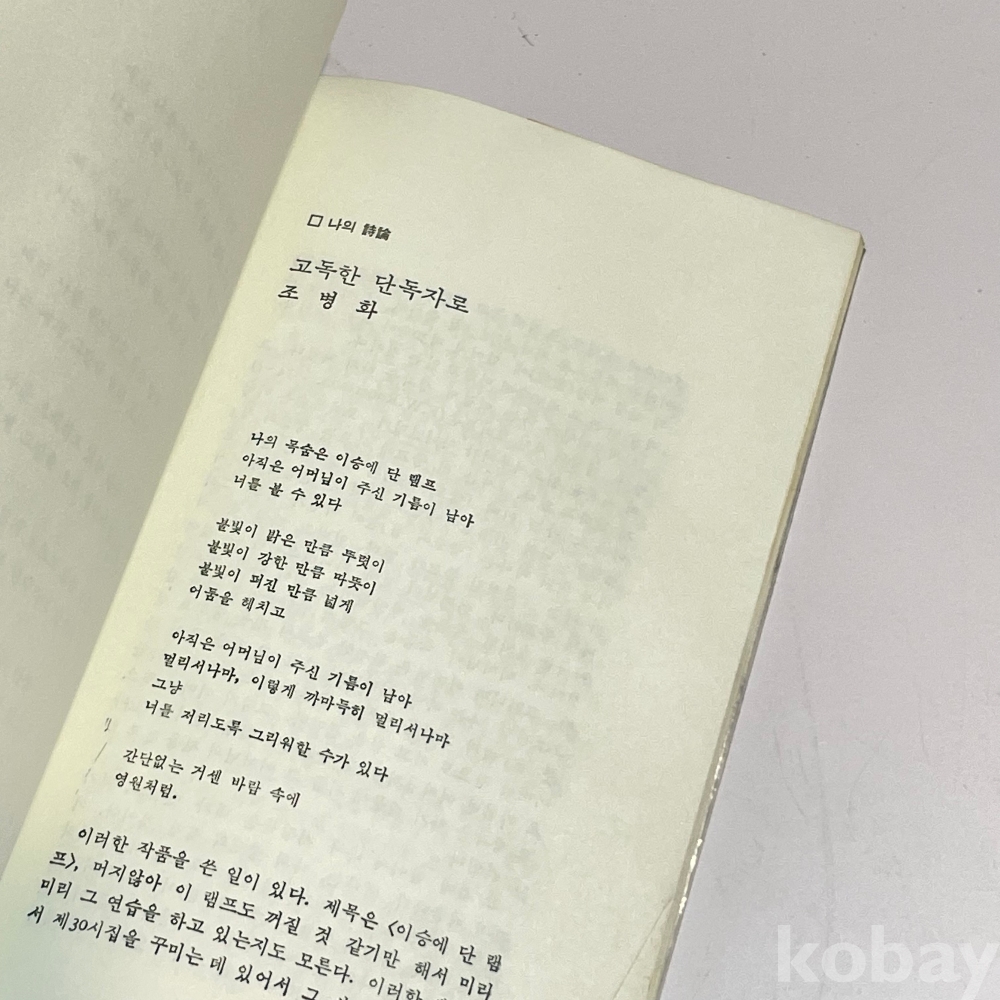 □ 나의 詩論
고독한 단독자로
조 병 화
나의 목숨은 이승에 단 램프
아직은 어머님이 주신 기름이 남아
너를 볼 수 있다
불빛이 밝은 만큼 뚜렷이
불빛이 강한 만큼 따뜻이
불빛이 퍼진 만큼 넓게
어둠을 헤치고
아직은 어머님이 주신 기름이 남아
멀리서나마, 이렇게 까마득히 멀리서나마
그냥
너를 저리도록 그리워할 수가 있다
간단없는 거센 바람 속에
영원처럼.
이러한 작품을 쓴 일이 있다. 제목은 〈이승에 단 램
프〉, 머지않아 이 램프도 꺼질 것 같기만 해서 미리
미리 그 연습을 하고 있는지도 모른다. 이러한
서 제30시집을 꾸미는 데 있어서 그
kobay